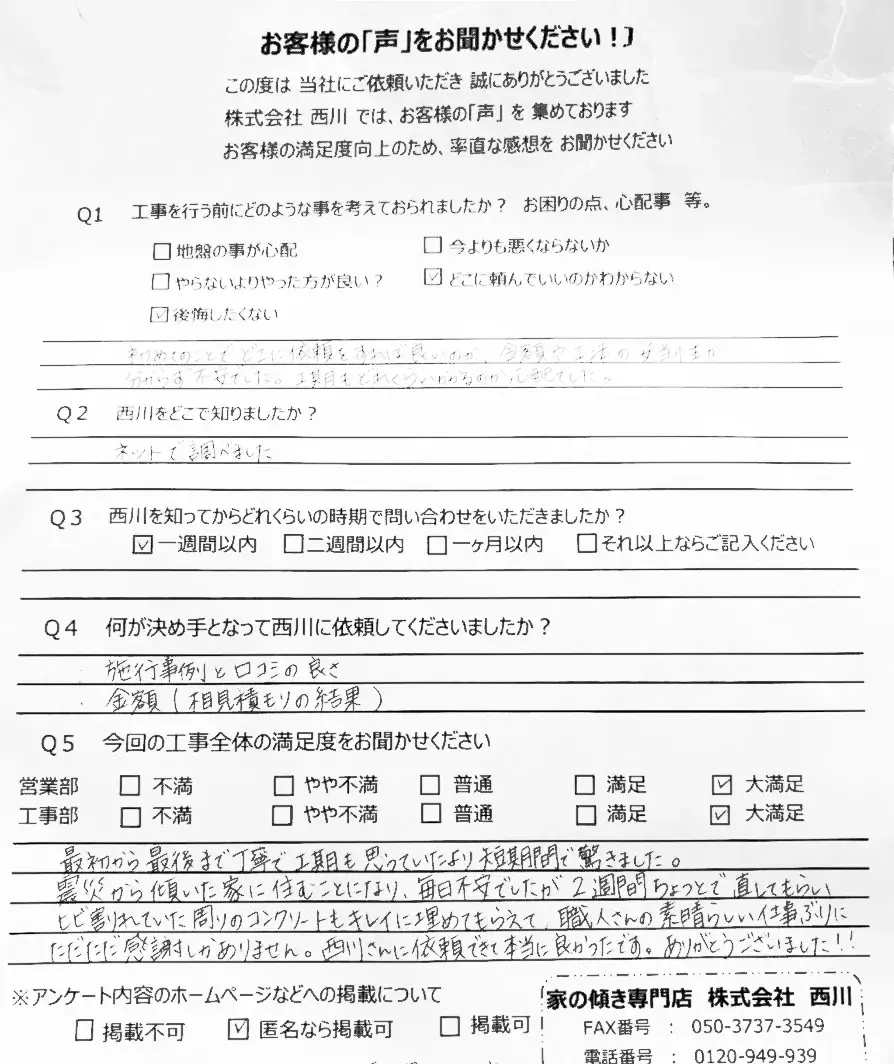 お客様の「声」をお聞かせください！】
この度は 当社にご依頼いただき 誠にありがとうございました
株式会社 西川 では、お客様の「声」 を 集めております
お客様の満足度向上のため、率直な感想を お聞かせください
Q1 工事を行う前にどのような事を考えておられましたか？ お困りの点、心配事 等。
□地盤の事が心配 □今よりも悪くならないか
□やらないよりやった方が良い？ ☑どこに頼んでいいのかわからない
☑後悔したくない
初めてのことでどこに依頼をすれば良いのか、金額や工法の
分からず不安でした。工期もどれくらいかかるのか心配でした。
Q2 西川をどこで知りましたか？
ネットで調べました
Q3 西川を知ってからどれくらいの時期で問い合わせをいただきましたか？
☑一週間以内 □二週間以内 □一ヶ月以内 □それ以上ならご記入ください
Q4 何が決め手となって西川に依頼してくださいましたか？
・施行事例と口コミの良さ
・金額（相見積もりの結果）
Q5 今回の工事全体の満足度をお聞かせください
営業部 □ 不満 □ やや不満 □ 普通 □ 満足 ☑ 大満足
工事部 □ 不満 □ やや不満 □ 普通 □ 満足 ☑ 大満足
最初から最後まで丁寧で工期も思っていたより短期間で驚きました。
震災から傾いた家に住むことになり、毎日不安でしたが2週間ちょっとで直してもらい
ヒビ割れていた周りのコンクリートもキレイに埋めてもらえて、職人さんの素晴らしい仕事ぶりに
ただただ感謝しかありません。西川さんに依頼できて本当に良かったです。ありがとうございました!!
※アンケート内容のホームページなどへの掲載について
□ 掲載不可 ☑ 匿名なら掲載可 □ 掲載可
家の傾き専門店 株式会社 西川
FAX番号 ： 050-3737-3549
電話番号 ： 0120-949-939